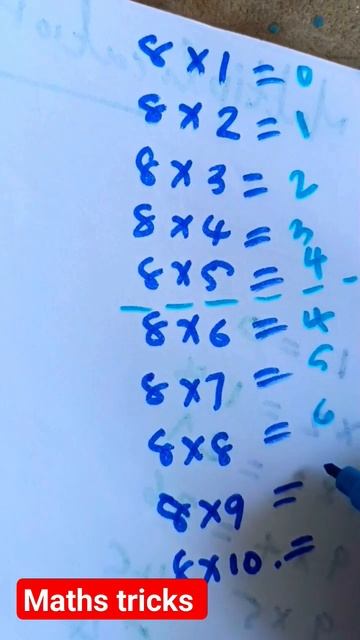 8 × 1 = 0
8 × 2 = 1
8 × 3 = 2
8 × 4 = 3
8 × 5 = 4
8 × 6 = 4
8 × 7 = 5
8 × 8 = 6
8 × 9 =
8 × 10 . =
Maths tricks